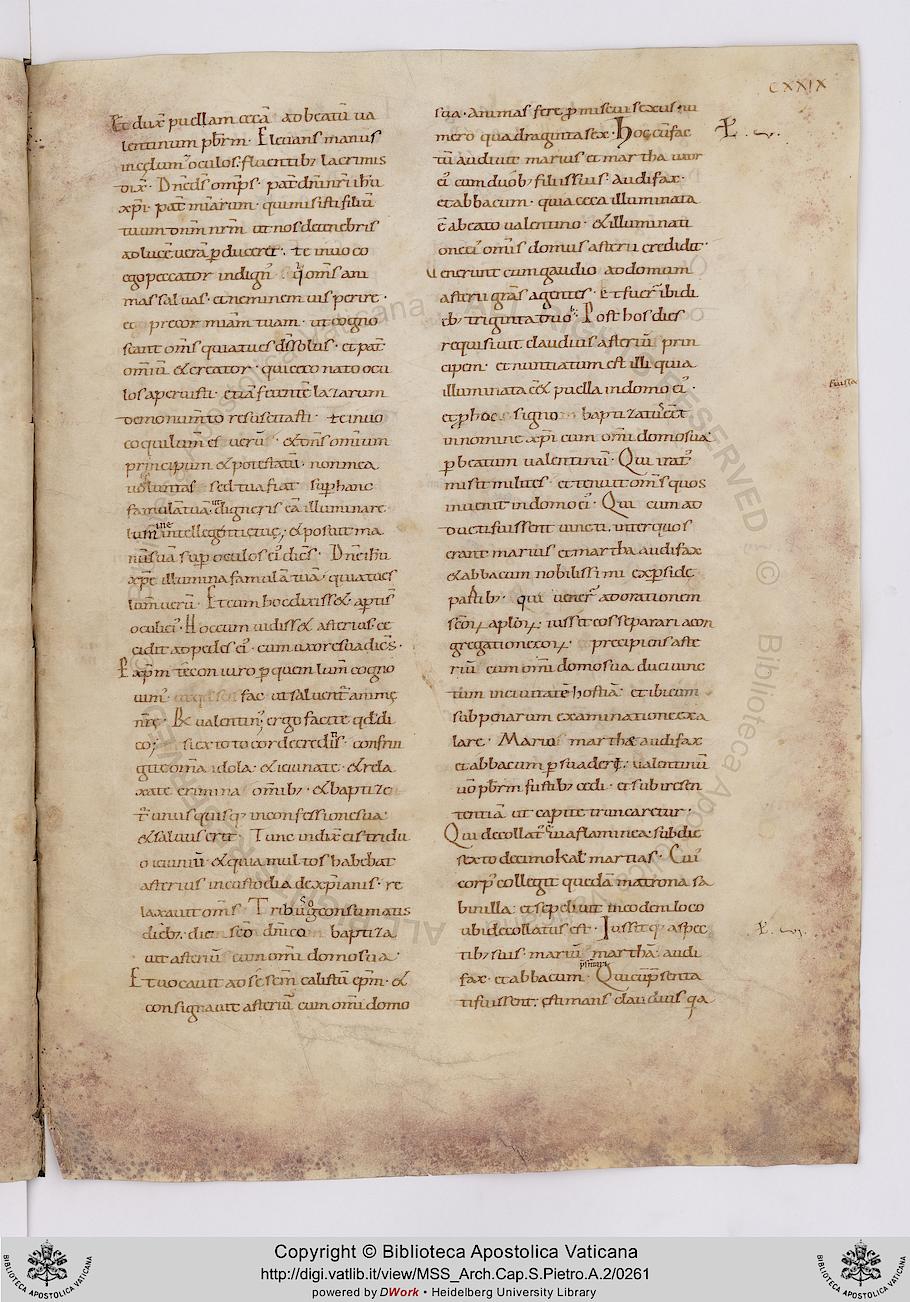 CXXIX
Et dux̄ puellam cecā ad beatū ua
lentinum pb̄rm· Eleuans manus
in celum oculos· fluentib; lacrimis
dix̄· Dn̄eds̄ omp̄s· pat̄ dn̄i nr̄i ih̄u
xp̄i· pat̄ mīarum· qui misisti filiū
tuum dn̄m nr̄m ut nos de tenebris
ad lucē uerā ꝑduceret· te inuoco
ego peccator indign᾽· q̄ om̄s ani
mas saluas· et neminem uis perire·
precor mīam tuam· ut cogno
scant om̄s quia tu es ds̄ solus· et pat̄
om̄iū & creator· qui ceco nato ocu
los aperuisti· etiā fetentē lazarum
de monumto resuscitasti· te inuo
co qui lum̄ es uerū· & dn̄s omnium
principum & potestatū· non mea
uoluntas sed tua fiat sup̄ hanc
famulā tuā· ut digneris eā illuminare
lumine intellegentie tue; & posuit ma
nū suā sup̄ oculos ei᾽ dicēs· Dn̄e ih̄u
xp̄e illumina famulā tuā· quia tu es
lum̄ uerū· Et cum hoc dixiss& apti s̄
oculi ei᾽· Hoc cum uidiss& asterius· ce
cidit ad pedes ei᾽· cum uxore sua dicēs·
P xp̄m te coniuro ꝑ quem lum̄ cogno
uim᾽ fac ut saluent̄ animę
nr̄ę· R̄ ualentin᾽; ergo facite qd̄ di
co; si ex toto corde creditis· confrin
gite om̄a idola· & ieiunate· & rela
xate crimina omib; & baptize
t̄ unusquisq; in confessione sua
& saluus erit· Tunc indix̄ eis tridu
o ieiuniū· & quia multos habebat
asterius in custodia de xp̄ianis· re
laxauit om̄s· Tribus ergo consumatis
dieb;· die sc̄o dn̄ico baptiza
uit asteriū cum omi domo sua·
Et uocauit ad se sc̄m calistū ep̄m· &
consignauit asteriū cum omi domo
sua· animas fere promiscui sexus nu
mero quadraginta sex· Hoc cū fac
tū audiuit marius et martha uxor
ei᾽ cum duob; filiis suis· audifax·
et abbacum· quia ceca illuminata
ē a beato ualentino· & illuminati
one ei᾽ om̄is domus asterii credidit·
Uenerunt cum gaudio ad domum
asterii gr̄as agentes· et fuer̄ ibi di
eb; triginta duob;· Post hos dies
requisiuit claudius asteriū prin
cipem· et nuntiatum est illi quia
illuminata eēt puella in domo ei᾽·
et ꝑ hoc signo baptizatus eēt
in nomine xp̄i cum omi domo sua
ꝑ beatum ualentinū· Qui irat᾽
misit milites· et tenuit om̄s quos
inuenit in domo ei᾽· Qui cum ad
ducti fuissent uincti· inter quos
erant marius et martha audifax
& abbacum nobilissimi ex perside
partib; qui uener̄ ad orationem
sc̄oꝝ aploꝝ· iussit eos separari a con
gregatione eoꝝ· precipiens aste
riū cum omi domo sua duci uinc
tum in ciuitatē hostiā· et ibi eum
sub penarum examinatione exa
lare· Mario martha audifax
et abbacum ꝑsuadere· ualentinū
uo pb̄rm fustib; cedi· et subire sen
tentiā ut capite truncaretur·
Qui decollat᾽ ē uia flaminea· sub die
sexto decimo kal̄ martias· Cui᾽
corp᾽ collegit quedā matrona sa
binilla· et sepeliuit in eodem loco
ubi decollatus est· Iussitq; aspec
tib; suis· mariū marthā· audi
fax· et abbacum· Qui cū p̄senta
ti fuissent· estimans claudius q̄a
Copyright © Biblioteca Apostolica Vaticana
http://digi.vatlib.it/view/MSS_Arch.Cap.S.Pietro.A.2/0261
powered by DWork • Heidelberg University Library
BIBLIOTECA APOSTOLICA VATICANA
BIBLIOTECA APOSTOLICA VATICANA